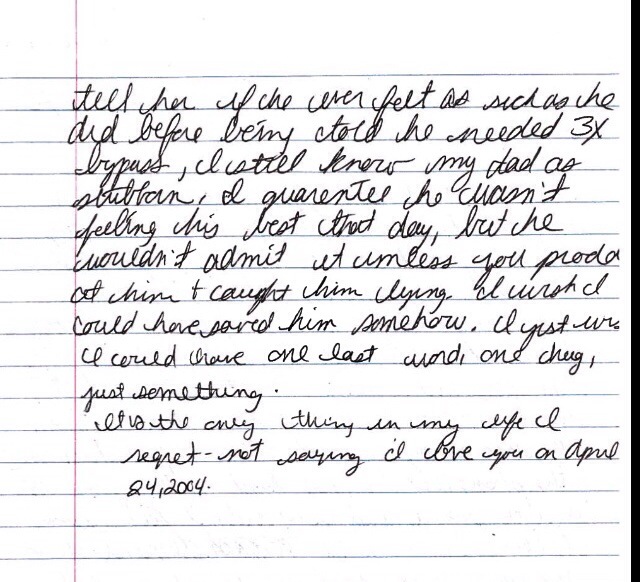 tell her if he ever felt as sick as he
did before being told he needed 3x
bypass, I still know my dad as
stubborn, I guarentee he wasn't
feeling his best that day, but he
wouldn't admit it unless you prodd
at him + caught him lying. I wish I
could have saved him somehow. I just wis
I could have one last word, one hug,
just something.
It is the only thing in my life I
regret-not saying I love you on April
24,2004.